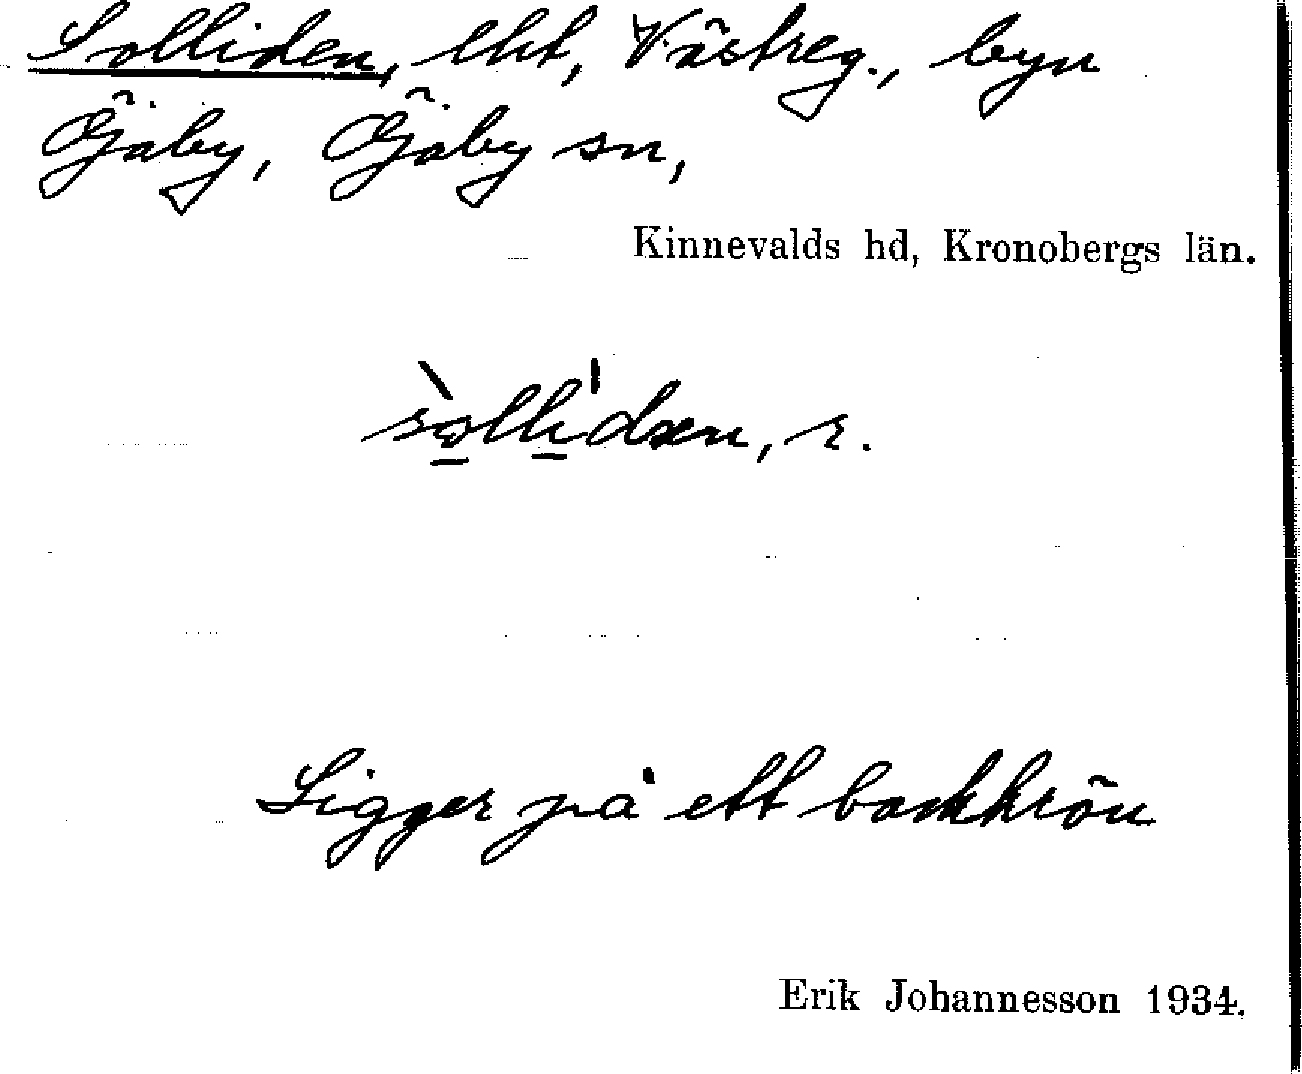 Solliden, lht, Västreg., byn
Öjaby, Öjaby sn,
Kinnevalds hd, Kronobergs län.
sòllídæn, r.
Ligger på ett backkrön
Erik Johannesson 1934.